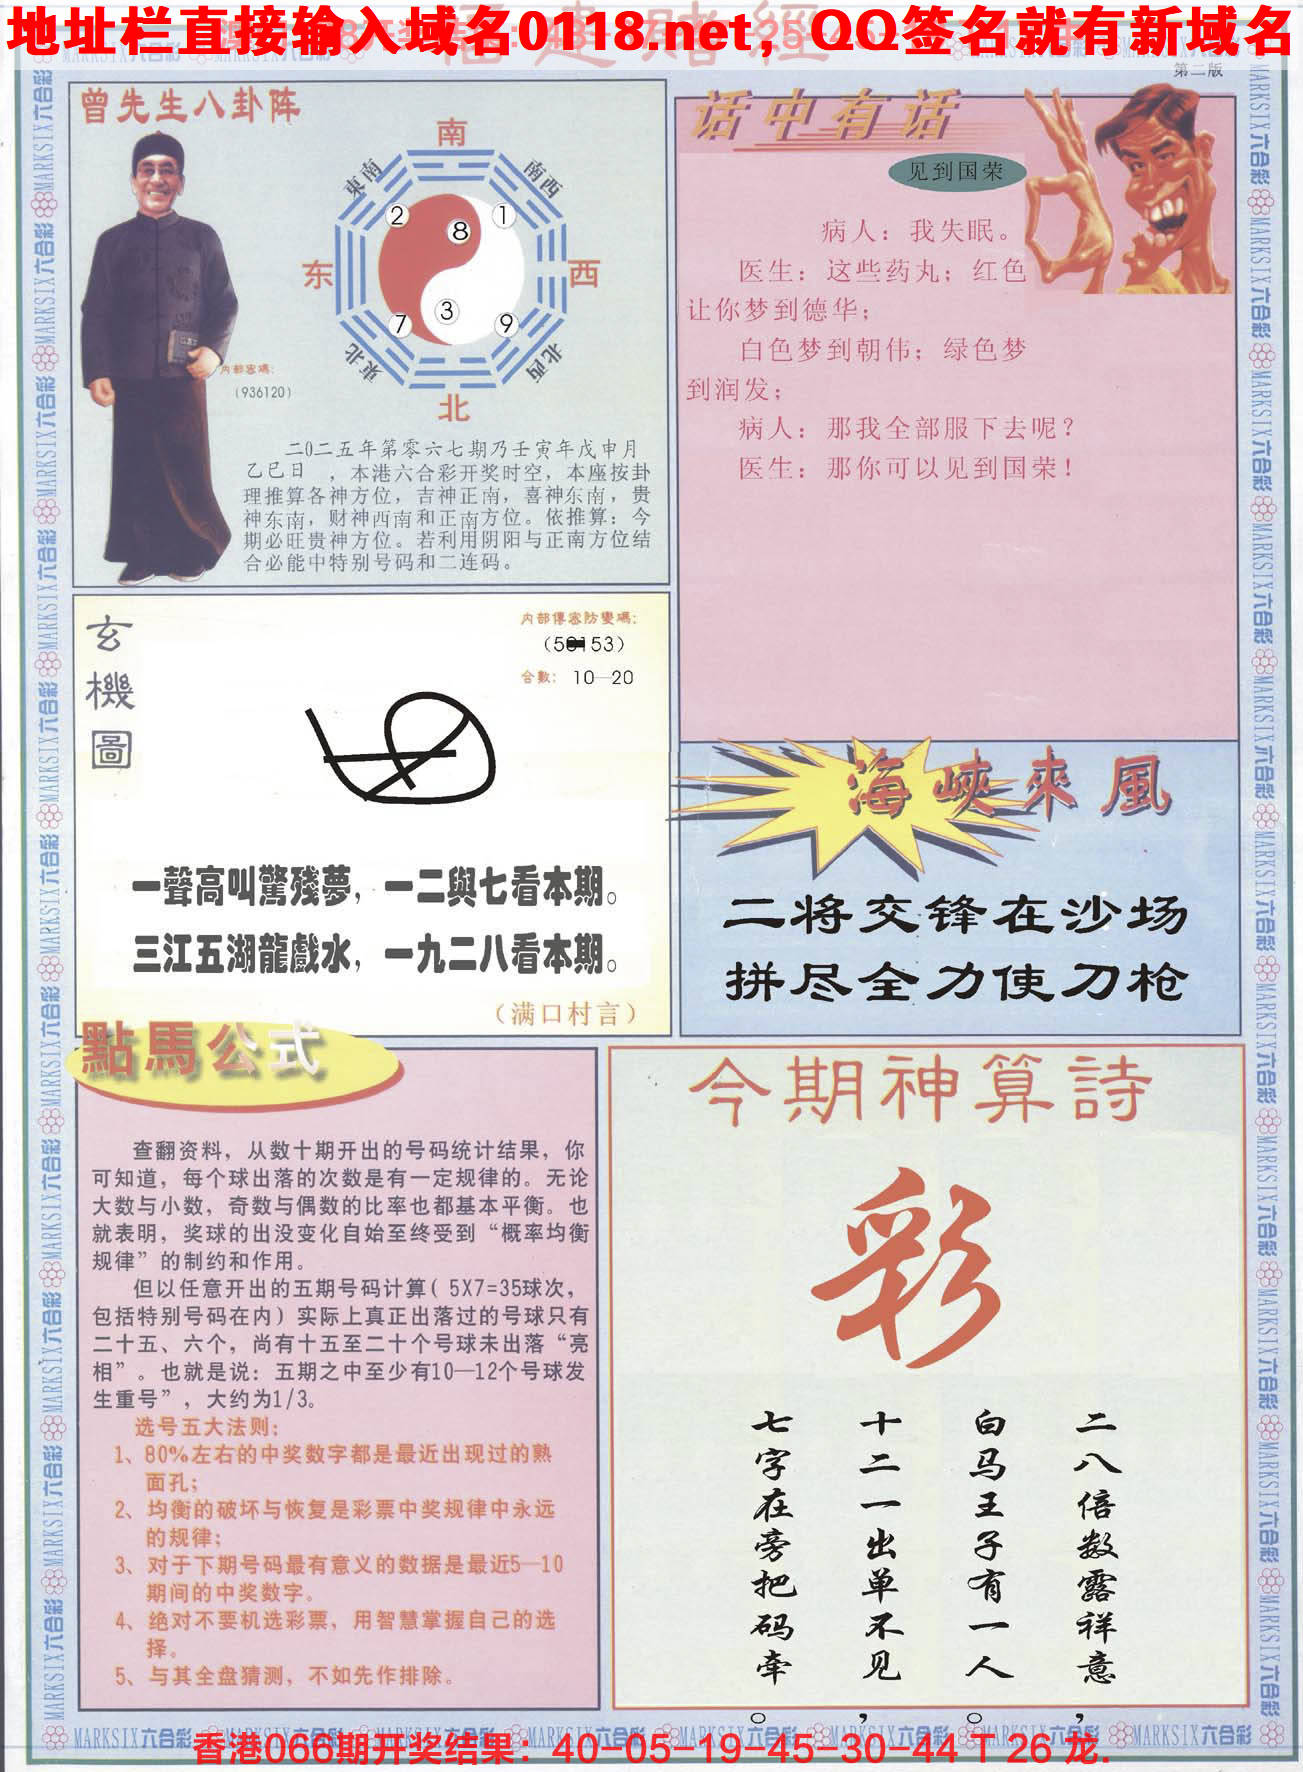 地址栏直接输入域名0118.net，QQ签名就有新域名
第二版
曾先生八卦阵
南
東南
南西
2
1
8
东
西
3
7
9
東北
北西
北
内部密碼：
（936120）
二0二五年第零六七期乃壬寅年戊申月
乙巳日　，本港六合彩开奖时空，本座按卦
理推算各神方位，吉神正南，喜神东南，贵
神东南，财神西南和正南方位。依推算：今
期必旺贵神方位。若利用阴阳与正南方位结
合必能中特别号码和二连码。
话中有话
见到国荣
病人：我失眠。
医生：这些药丸；红色
让你梦到德华；
白色梦到朝伟；绿色梦
到润发；
病人：那我全部服下去呢？
医生：那你可以见到国荣！
玄機圖
内部傳密防變碼：
合數：10—20
一聲高叫驚殘夢，一二與七看本期。
三江五湖龍戲水，一九二八看本期。
（满口村言）
海峽來風
二将交锋在沙场
拼尽全力使刀枪
點馬公式
查翻资料，从数十期开出的号码统计结果，你
可知道，每个球出落的次数是有一定规律的。无论
大数与小数，奇数与偶数的比率也都基本平衡。也
就表明，奖球的出没变化自始至终受到“概率均衡
规律”的制约和作用。
但以任意开出的五期号码计算（5X7=35球次，
包括特别号码在内）实际上真正出落过的号球只有
二十五、六个，尚有十五至二十个号球未出落“亮
相”。也就是说：五期之中至少有10—12个号球发
生重号”，大约为1/3。
选号五大法则：
1、80%左右的中奖数字都是最近出现过的熟
面孔；
2、均衡的破坏与恢复是彩票中奖规律中永远
的规律；
3、对于下期号码最有意义的数据是最近5—10
期间的中奖数字。
4、绝对不要机选彩票，用智慧掌握自己的选
择。
5、与其全盘猜测，不如先作排除。
今期神算詩
彩
二八倍数露祥意，
白马王子有一人。
十二一出单不见，
七字在旁把码牵。
MARKSIX六合彩
香港066期开奖结果：40-05-19-45-30-44 T 26 龙.